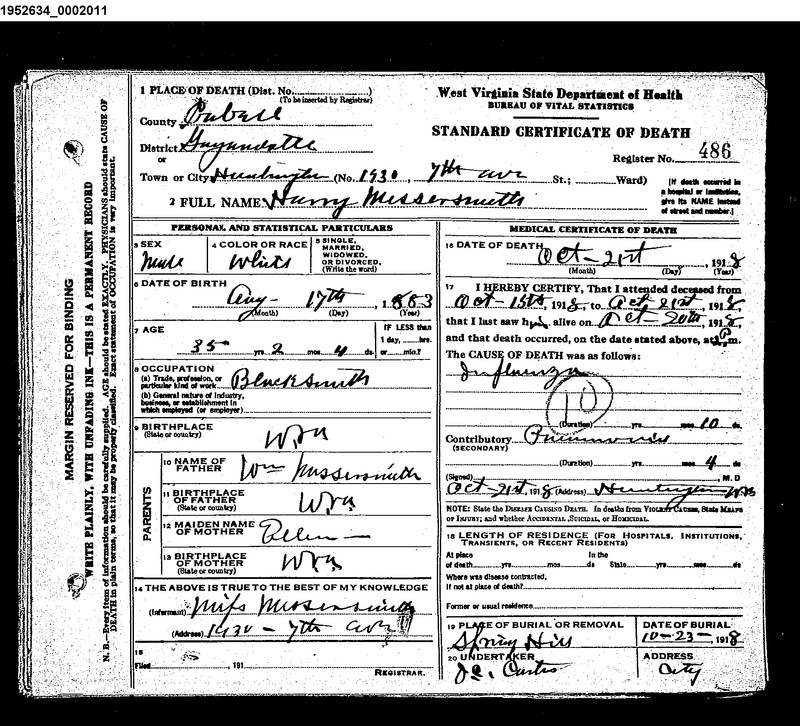 1952634_0002011
1 PLACE OF DEATH (Dist. No. )
(To be inserted by Registrar)
County Cabell
District Guyandotte
or
Town or City Huntington (No. 1930, 7th ave St.; Ward)
2 FULL NAME Harry Messersmith
West Virginia State Department of Health
BUREAU OF VITAL STATISTICS
STANDARD CERTIFICATE OF DEATH
Register No. 486
[If death occurred in a hospital or institution, give its NAME instead of street and number.]
MARGIN RESERVED FOR BINDING
WRITE PLAINLY, WITH UNFADING INK—THIS IS A PERMANENT RECORD
N. B.—Every item of information should be carefully supplied. AGE should be stated EXACTLY. PHYSICIANS should state CAUSE OF
DEATH in plain terms, so that it may be properly classified. Exact statement of OCCUPATION is very important.
PERSONAL AND STATISTICAL PARTICULARS
3 SEX
Male
4 COLOR OR RACE
White
5 SINGLE,
MARRIED,
WIDOWED,
OR DIVORCED.
(Write the word)
6 DATE OF BIRTH
Aug - 17th, 1883
(Month) (Day) (Year)
7 AGE
35 yrs 2 mos 4 ds
IF LESS than
1 day, hrs.
or min.?
8 OCCUPATION
(a) Trade, profession, or
particular kind of work Blacksmith
(b) General nature of industry,
business, or establishment in
which employed (or employer)
9 BIRTHPLACE
(State or country)
W Va
PARENTS
10 NAME OF
FATHER Wm Messersmith
11 BIRTHPLACE
OF FATHER
(State or country) W Va
12 MAIDEN NAME
OF MOTHER
13 BIRTHPLACE
OF MOTHER
(State or country) W Va
14 THE ABOVE IS TRUE TO THE BEST OF MY KNOWLEDGE
(Informant) Messersmith
(Address) 1930 - 7th ave
15
Filed , 191
REGISTRAR.
MEDICAL CERTIFICATE OF DEATH
16 DATE OF DEATH
Oct - 21st, 1918
(Month) (Day) (Year)
17 I HEREBY CERTIFY, That I attended deceased from
Oct - 15th, 1918, to Oct 21st, 1918,
that I last saw him alive on Oct - 20th, 1918,
and that death occurred, on the date stated above, at m.
The CAUSE OF DEATH was as follows:
Influenza
10
(Duration) yrs mos 10 ds
Contributory Pneumonia
(SECONDARY)
(Duration) yrs mos 4 ds
(Signed) , M. D
Oct - 21st, 1918 (Address) Huntington W Va
NOTE: State the DISEASE CAUSING DEATH. In deaths from VIOLENT CAUSES, State MEANS
OF INJURY; and whether ACCIDENTAL, SUICIDAL, or HOMICIDAL.
18 LENGTH OF RESIDENCE (FOR HOSPITALS, INSTITUTIONS,
TRANSIENTS, OR RECENT RESIDENTS)
At place In the
of death yrs mos ds State yrs mos ds
Where was disease contracted,
if not at place of death?
Former or usual residence
19 PLACE OF BURIAL OR REMOVAL
Spring Hill
DATE OF BURIAL
10-23-, 1918
20 UNDERTAKER
Curtis
ADDRESS
City